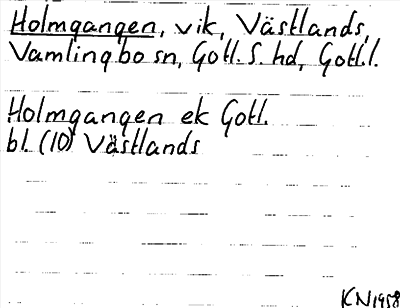 Holmgangen, vik, Västlands,
Vamlingbo sn, Gotl. S. hd, Gotl. l.
Holmgangen ek Gotl.
bl. (10) Västlands
KN 1958